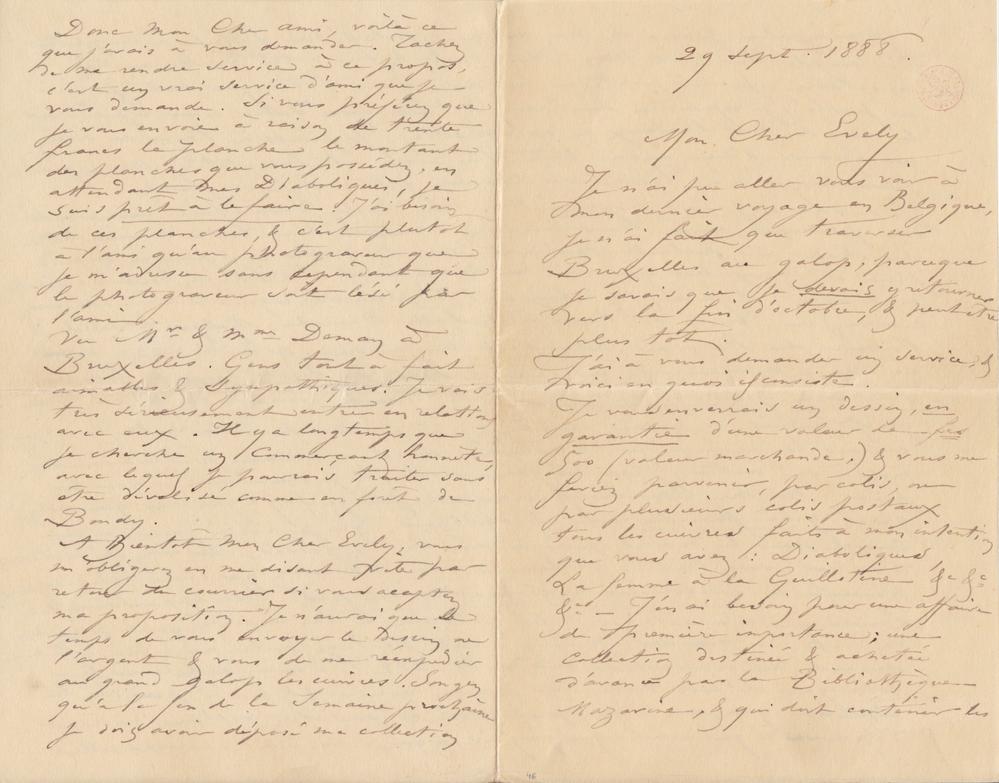 29 Sept. 1888.
Mon Cher Evely
Je n'ai pu aller vous voir à
mon dernier voyage en Belgique,
je n'ai fait que traverser
Bruxelles au galop, parceque
je savais que je devais y retourner
vers la fin d'octobre, & peut etre
plus tot.
J'ai à vous demander un service, &
voici en quoi il consiste.
Je vous enverrais un dessin, en
garantie d'une valeur de frs
500 (valeur marchande,) & vous me
feriez parvenir, par colis, ou
par plusieurs colis postaux
tous les cuivres faits à mon intention
que vous avez : Diaboliques,
La femme à la Guillotine &c &c
&c – J'en ai besoin pour une affaire
de première importance ; une
collection destinée & achetée
d'avance par la Bibliothèque
Mazarine, & qui doit contenir les
Donc Mon Cher ami, voilà ce
que j'avais à vous demander. Tachez
de me rendre service à ce propos,
c'est un vrai service d'ami que je
vous demande. Si vous préférez que
je vous envoie à raison de trente
francs la planche le montant
des planches que vous possédez, en
attendant mes Diaboliques, je
suis pret à le faire. J'ai besoin
de ces planches, & c'est plutot
a l'ami qu'au photograveur que
je m'adresse sans cependant que
le photograveur soit lésé par
l'ami.
Vu Mr & Mme Deman à
Bruxelles. Gens tout à fait
aimables & sympathiques. Je vais
très sérieusement entrer en relations
avec eux. Il y a longtemps que
je cherche un Commerçant honnete,
avec lequel je pourrais traiter sans
etre dévalisé comme en foret de
Bondy.
A Bientot Mon Cher Evely, vous
m'obligerez en me disant vite par
retour du courrier si vous acceptez
ma proposition. Je n'aurai que le
temps de vous envoyer le dessin ou
l'argent & vous de me réexpédier
au grand galop les cuivres. Songez
qu'à la fin de la Semaine prochaine
je dois avoir déposé ma collection
46